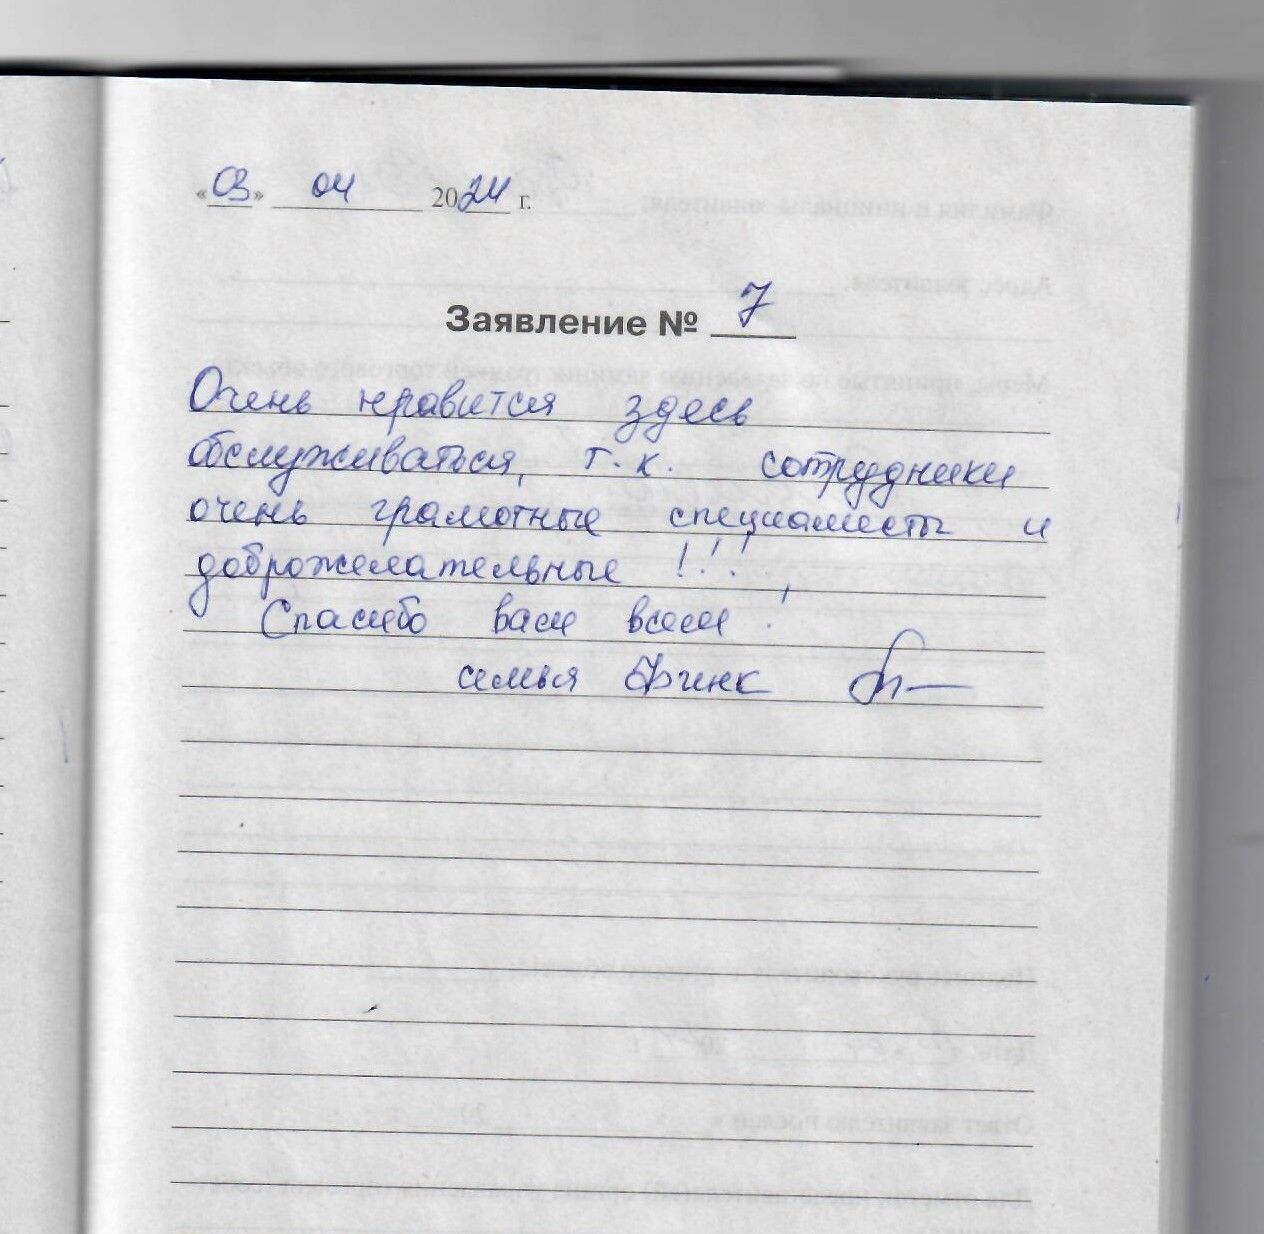 «03» 04 2024 г.
Заявление № 7
Очень нравится здесь
обслуживаться, т.к. сотрудники
очень грамотные специалисты и
доброжелательные !!!
Спасибо вам всем !
семья Финк